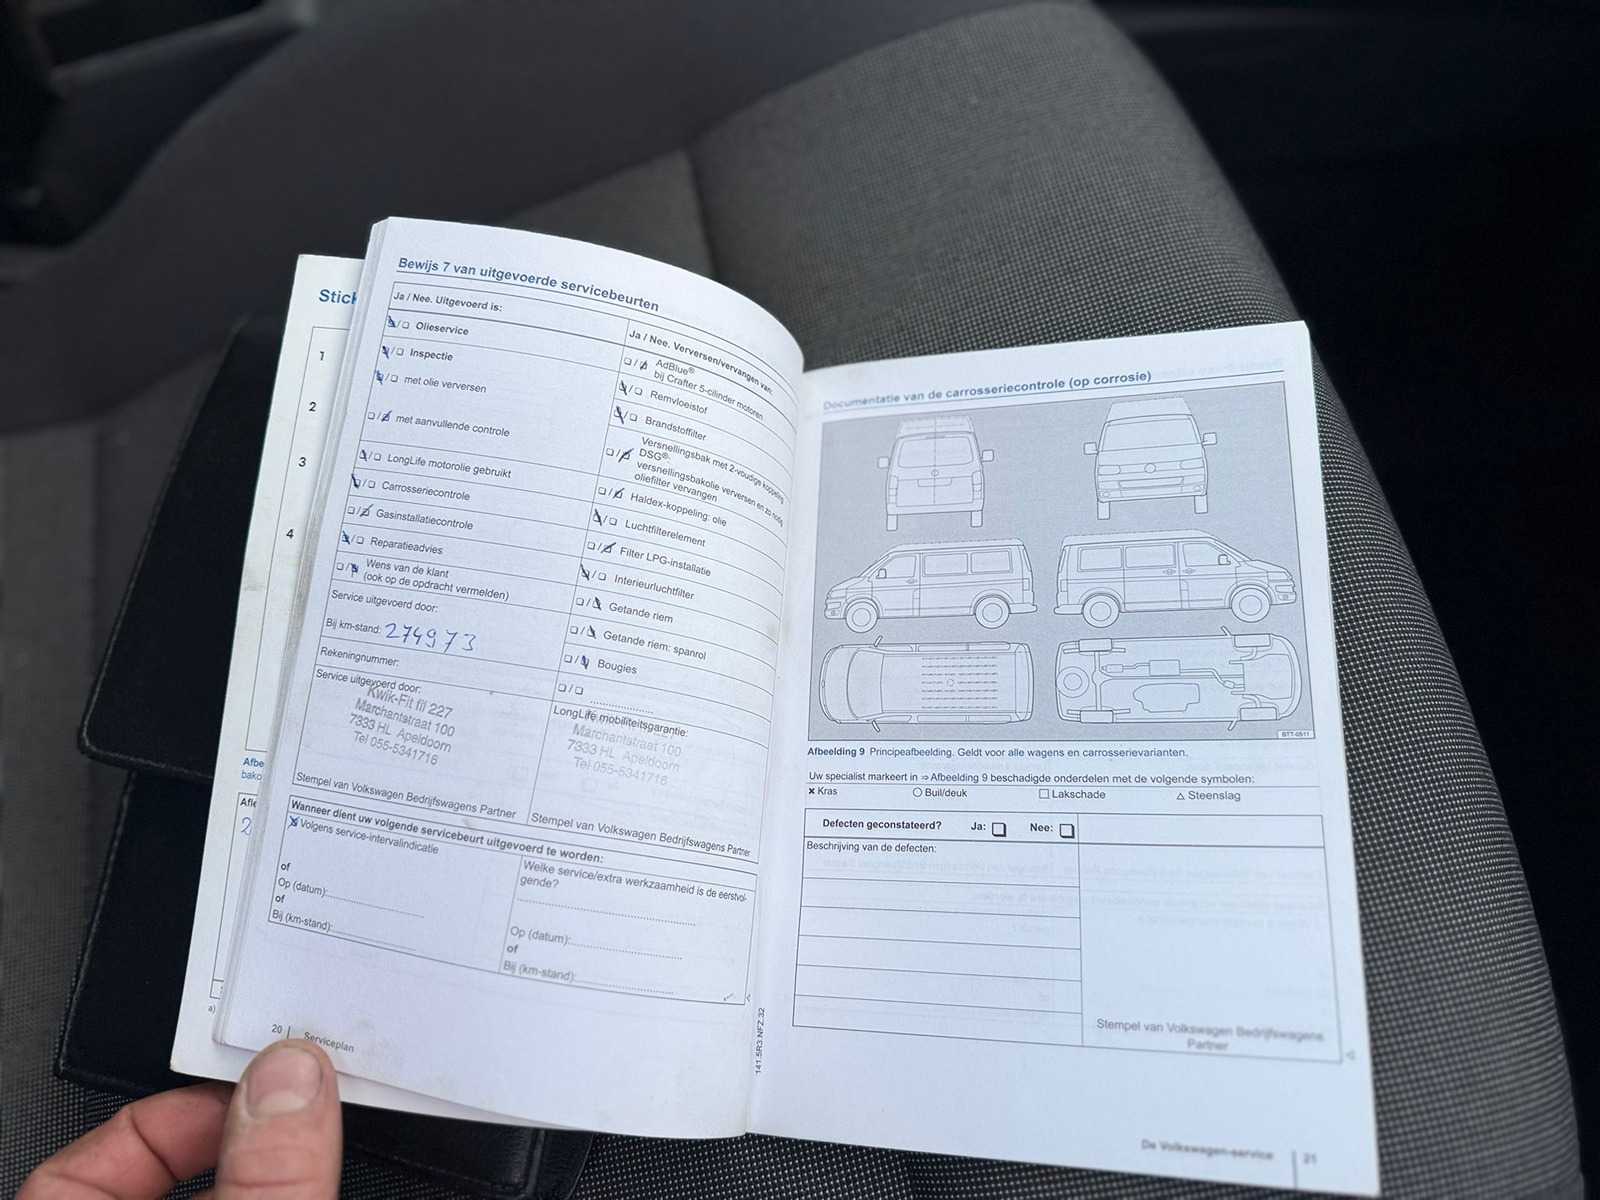 Stick
1
2
3
4
Afbe
bako
Afle
2
a)
Bewijs 7 van uitgevoerde servicebeurten
Ja / Nee. Uitgevoerd is:
Olieservice
Inspectie
met olie verversen
met aanvullende controle
LongLife motorolie gebruikt
Carrosseriecontrole
Gasinstallatiecontrole
Reparatieadvies
Wens van de klant
(ook op de opdracht vermelden)
Service uitgevoerd door:
Bij km-stand: 274973
Rekeningnummer:
Service uitgevoerd door:
Kwik-Fit fil 227
Marchantstraat 100
7333 HL Apeldoorn
Tel 055-5341716
Stempel van Volkswagen Bedrijfswagens Partner
Ja / Nee. Verversen/vervangen van:
AdBlue®
bij Crafter 5-cilinder motoren
Remvloeistof
Brandstoffilter
Versnellingsbak met 2-voudige koppeling
DSG®:
versnellingsbakolie verversen en zo nodig
oliefilter vervangen
Haldex-koppeling: olie
Luchtfilterelement
Filter LPG-installatie
Interieurluchtfilter
Getande riem
Getande riem: spanrol
Bougies
LongLife mobiliteitsgarantie:
Marchantstraat 100
7333 HL Apeldoorn
Tel 055-5341716
Stempel van Volkswagen Bedrijfswagens Partner
Wanneer dient uw volgende servicebeurt uitgevoerd te worden:
Volgens service-intervalindicatie
of
Op (datum):
of
Bij (km-stand):
Welke service/extra werkzaamheid is de eerstvol-
gende?
Op (datum):
of
Bij (km-stand):
20
Serviceplan
141.5R3.NFZ.32
Documentatie van de carrosseriecontrole (op corrosie)
BTT-0511
Afbeelding 9 Principeafbeelding. Geldt voor alle wagens en carrosserievarianten.
Uw specialist markeert in ⇒ Afbeelding 9 beschadigde onderdelen met de volgende symbolen:
× Kras ○ Buil/deuk □ Lakschade △ Steenslag
Defecten geconstateerd? Ja: Nee:
Beschrijving van de defecten:
Stempel van Volkswagen Bedrijfswagens
Partner
De Volkswagen-service
21